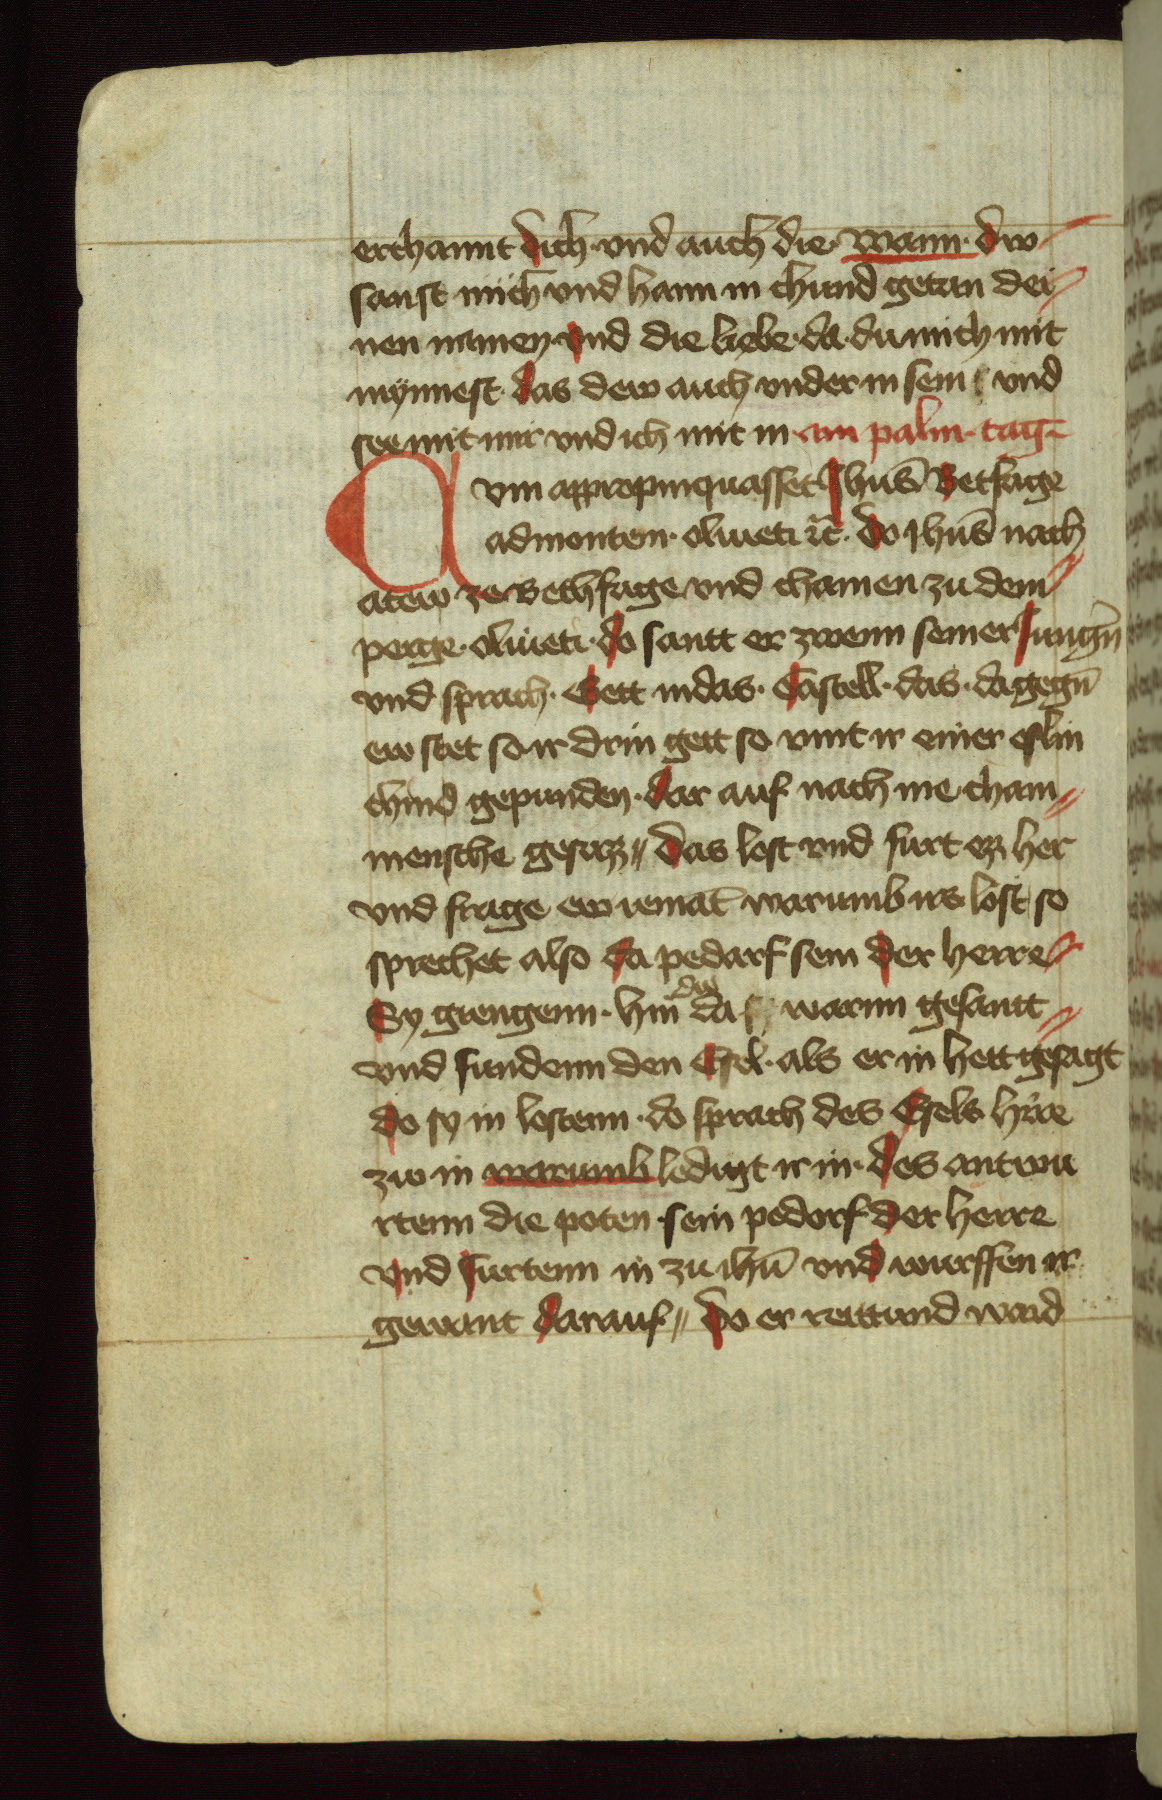 erchannt dich · vnd auch die · wann · dw
sanst mich vnd hann in chund getan dei
nen namen · vnd die liebe · da · du mich mit
mynnest · das dew auch vnder in sein vnd
see mit mir vnd ich mit in · am palm · tag
Cum appropinquasset Jhūs Betfage
ad montem · oliueti ꝛc̄ · do Jhūs nach
aten ze Bethfage vnd chamen zu dem
perge · oliueti · do santt er zwenn seiner Jungn̄
vnd sprach · Gett in das · Castell · das · da gegn̄
ew stet so ir drin gett so vint ir einer eslin
chind gepunden · dar auf nach nie cham
mensche gesaz // das lost vnd furt ez her
vnd frage ew iemāt warumb irs lost so
sprechet also da pedarf sein der herre
Sy giengenn · hin da die warnn gesantt
vnd fundenn den Esel · als er in hett gesagt
do sy in lostenn · do sprach des Esels h're
zw in warumb ledigt ir in · des antwu
rtenn die poten · sein pedorf der herre
vnd furtenn in zu ihū vnd wurffen ir
gewant darauf // do er reittund ward